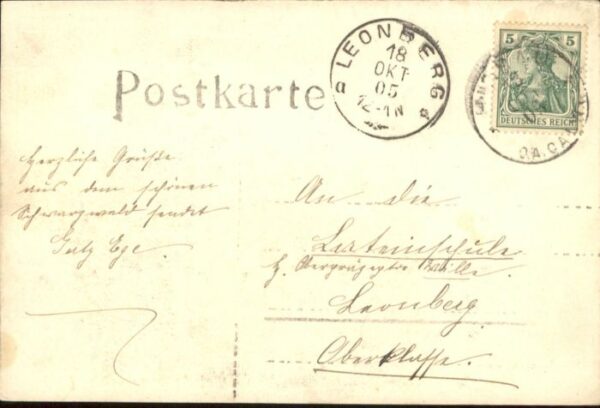 Postkarte
LEONBERG
18
OKT
05
12-1N
5 5
DEUTSCHES REICH
O.A. CALW
Herzliche Grüße
aus dem schönen
Schwarzwald sendet
An die
Lateinschule
H. Oberpräzeptor Wille.
Leonberg
Oberklasse.